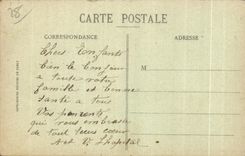 28
CARTE POSTALE
CORRESPONDANCE
ADRESSE
M
Chers Enfants
Bien le Bonjour
a toute votre
famille et bonne
santé a tous
Vos parents
qui vous embrasse
de tout leurs cœur